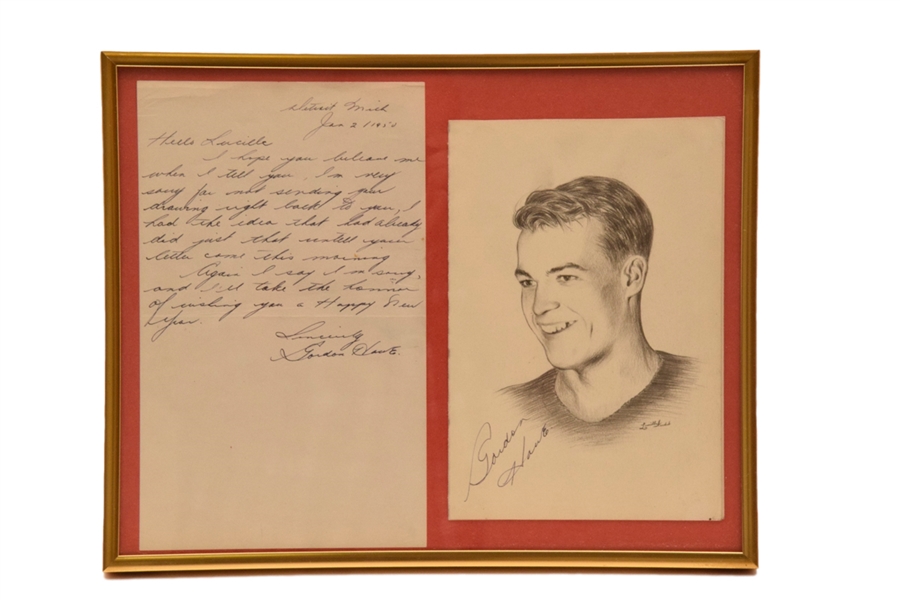 Detroit Mich
Jan 2/1950
Hello Lucille
I hope you believe me
when I tell you I'm very
sorry for not sending your
drawing right back to you, I
had the idea that had already
did just that untell your
letter came this morning
Again I say I'm sorry,
and I'll take the honner
of wishing you a Happy New
Year.
Sincerly
Gordon Howe.
Gordon
Howe